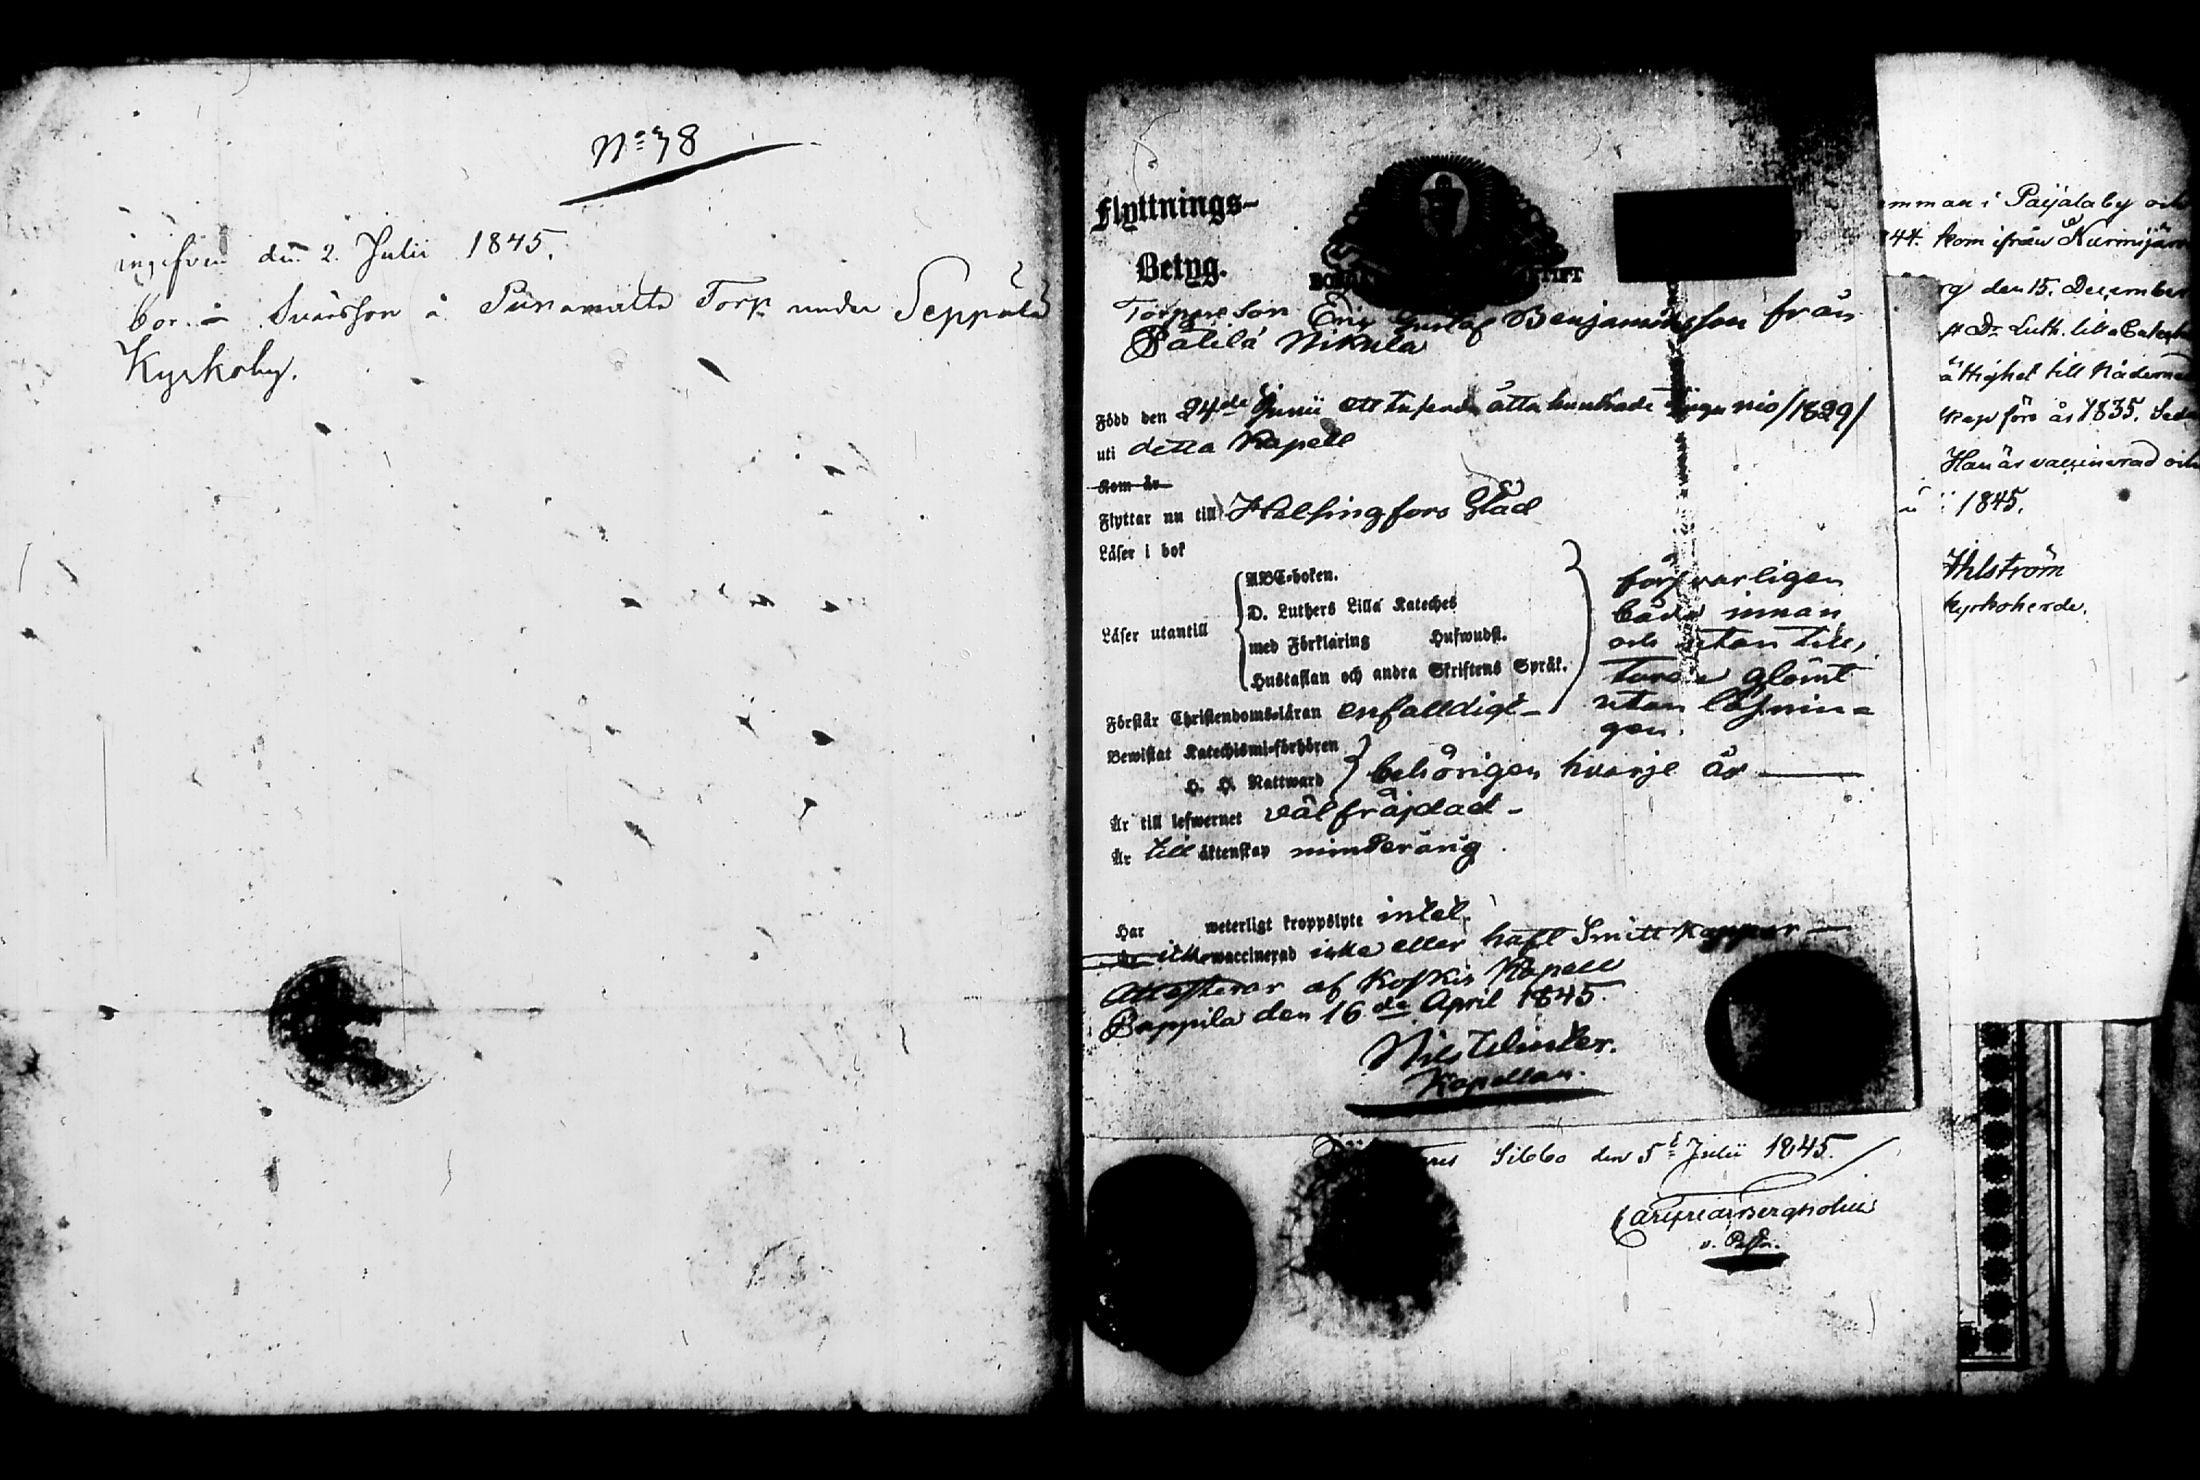 No 78
ingifven den 2. Julii 1845.
bor Svärsson å Torp under Seppälä
Kyrkoby.
Flyttnings-
Betyg.
STIFT
Torpare Son Eric Gustaf Benjaminsson från
Pätilä Nikula
Född den 24de Junii ett tusende åtta hundrade tjugu nio /1829/
uti detta Kapell
Kom år
Flyttar nu till Helsingfors Stad
Läser i bok
Läser utantill
ABC-boken.
D. Luthers Lilla Kateches
med Förklaring Hufwudst.
Hustaflan och andra Skriftens Språk.
försvarligen
både innan
och utan till,
torde glömt
utan läsnin=
gen.
Förstår Christendoms-läran enfalldigt -
Bewistat Katechismi-förhören
H. H. Nattward
behörigen hvarje år
Är till lefwernet välfräjdad -
Är till äktenskap minderårig.
Har weterligt kroppslyte intet,
Är icke waccinerad icke eller haft Smittkoppor -
Attesterar af Koskis Kapell
Pappila den 16de April 1845.
Nils Winter.
Kapellan.
Sibbo den 5 Julii 1845.
Bergholm
v. Past.
mman i Paijalaby och
44. kom ifrån Nurmijärvi
rg den 15. December
Dr Luth. lilla Catech
ättighet till Nådemed
kap före år 1835. Sed
Han är vaccinerad och
i 1845.
Ahlström
kyrkoherde.